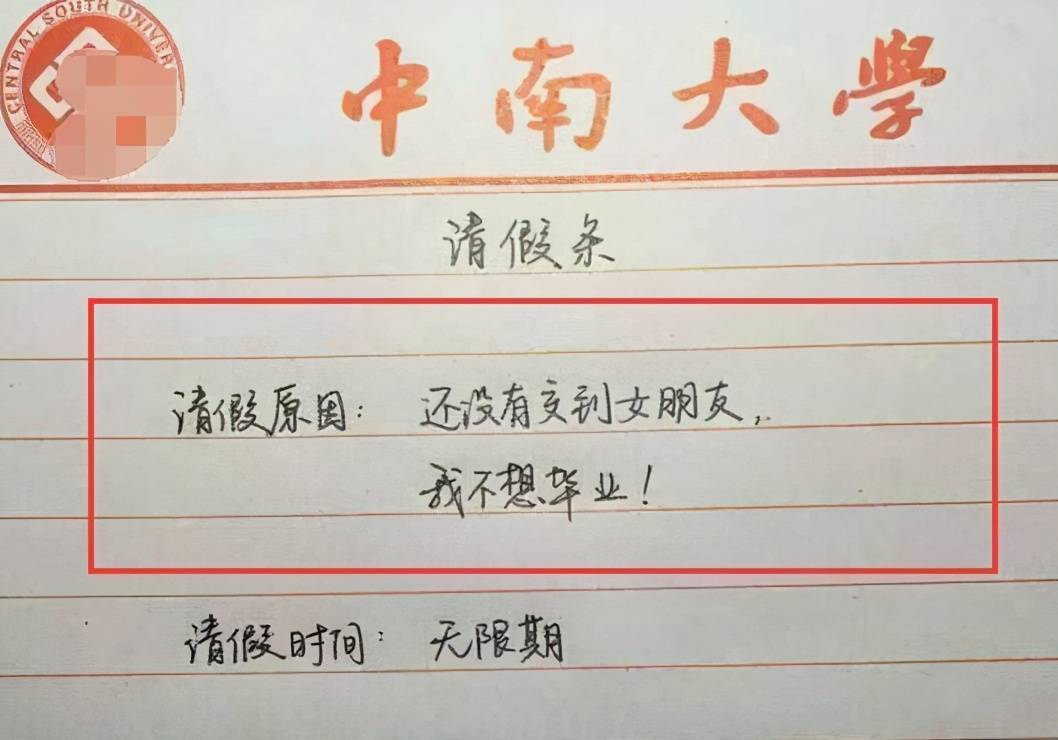 CENTRAL SOUTH UNIVER
中南大學
请假条
请假原因：还没有交到女朋友，
我不想毕业！
请假时间：无限期